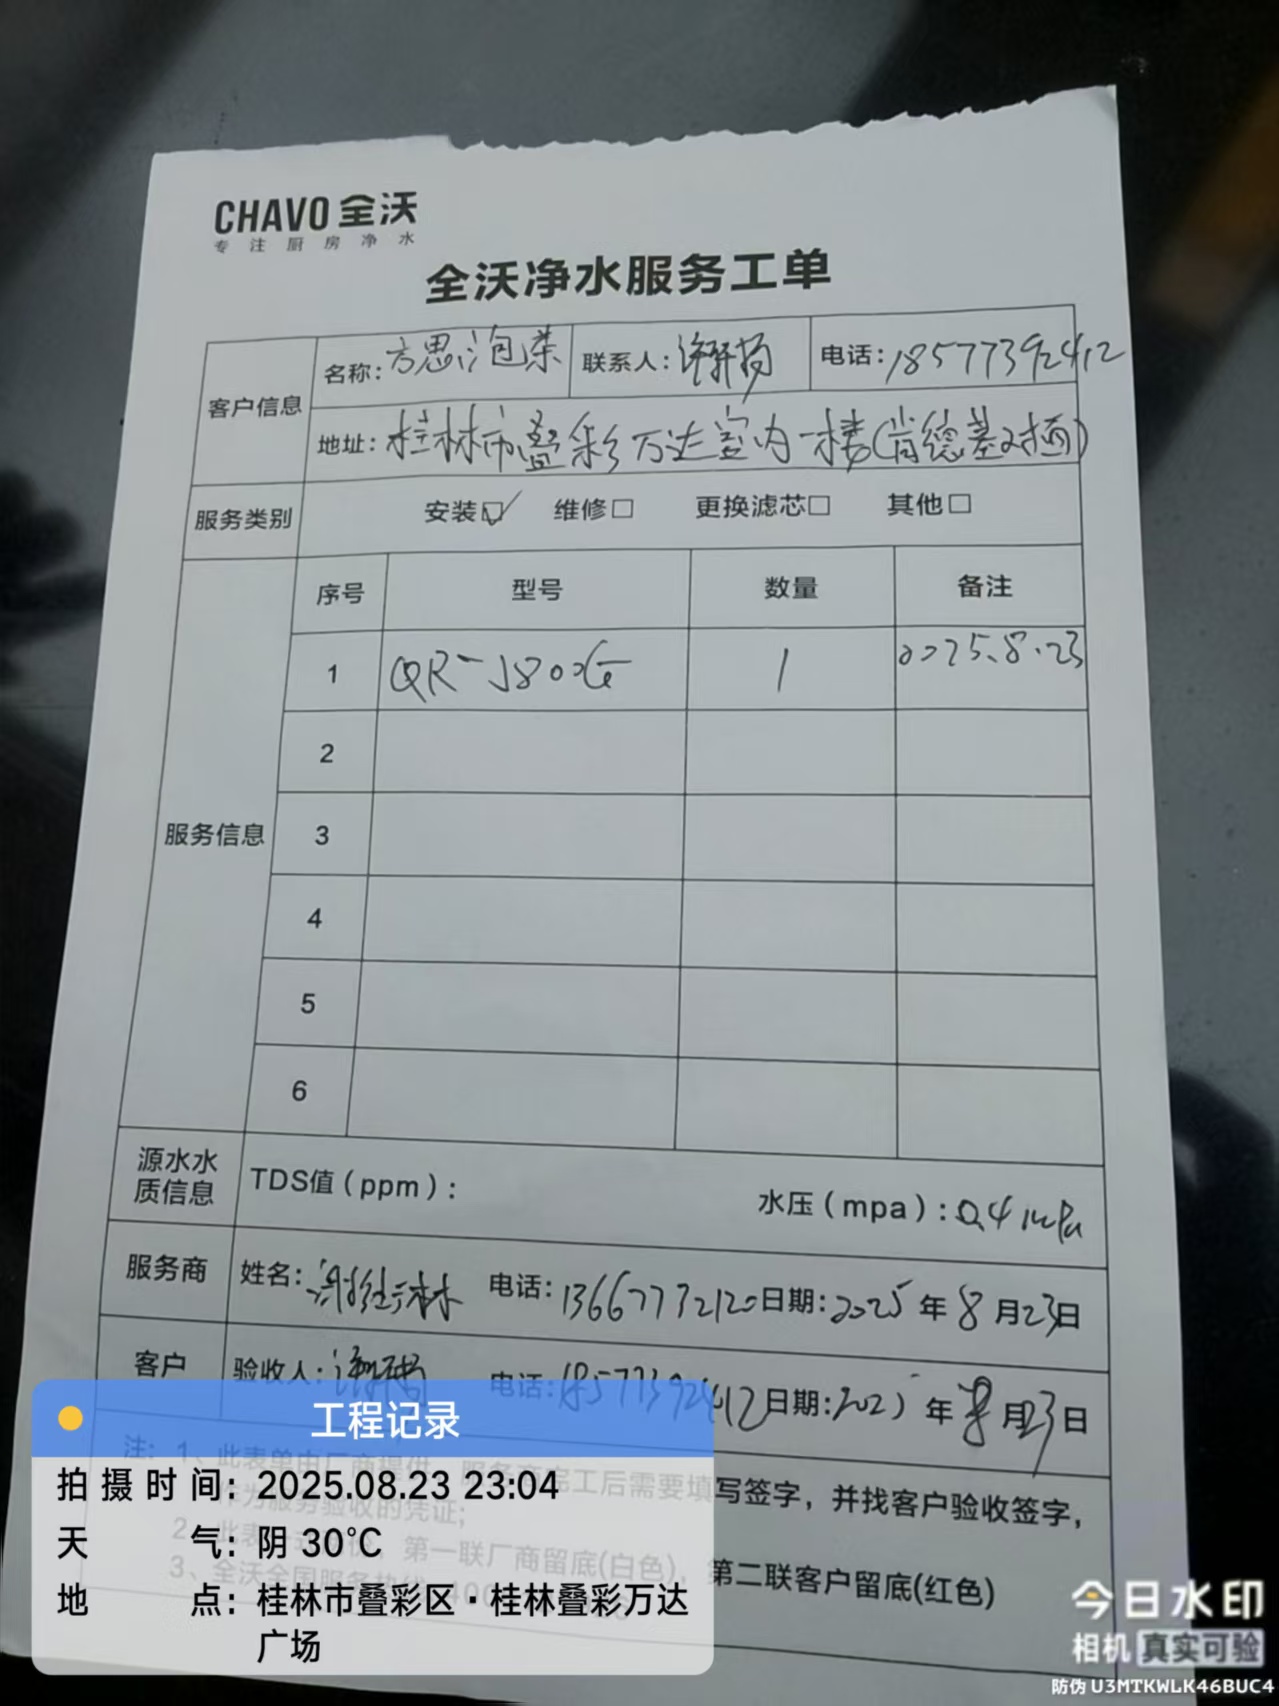 CHAVO 全沃
专注厨房净水
全沃净水服务工单
客户信息 名称：方思泡菜 联系人： 电话：18577392412
地址：桂林市叠彩万达室内一楼(肯德基对面)
服务类别 安装☑ 维修□ 更换滤芯□ 其他□
服务信息 序号 型号 数量 备注
1 QR-J800G 1 2025.8.23
2
3
4
5
6
源水水质信息 TDS值（ppm）： 水压（mpa）：0.4mpa
服务商 姓名： 电话：13667732120 日期：2025年8月23日
客户 验收人： 电话：18577392412 日期：2025年8月23日
注：1、此表单由厂商提供，服务商完工后需要填写签字，并找客户验收签字，
作为服务验收的凭证；
2、此表 第一联厂商留底(白色)，第二联客户留底(红色)
3、全沃全国服务热线 400
工程记录
拍摄时间：2025.08.23 23:04
天气：阴 30℃
地点：桂林市叠彩区·桂林叠彩万达
广场
今日水印
相机 真实可验
防伪 U3MTKWLK46BUC4